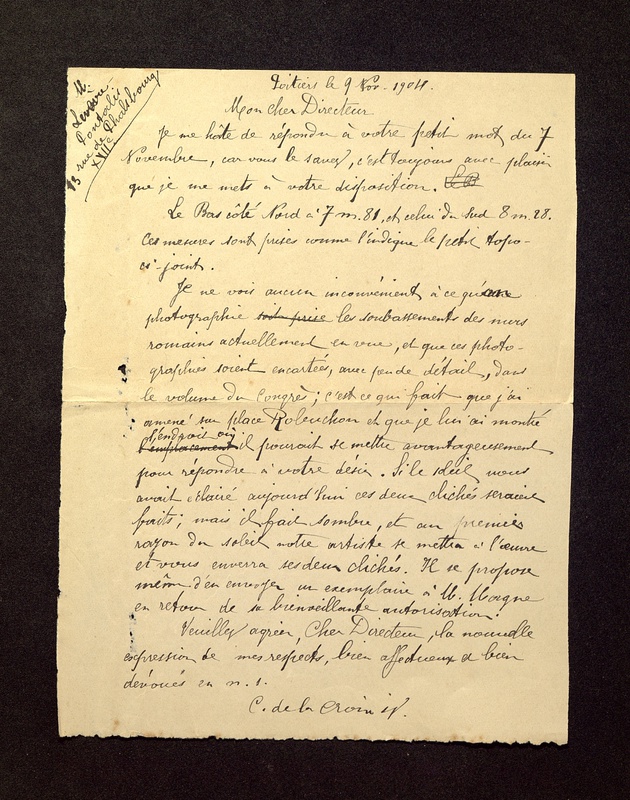 M. Lefèvre
Pontalis
13 rue de Phalsbourg
XVIIe
Poitiers le 9 Nov. 1904.
Mon cher Directeur
Je me hâte de répondre à votre petit mot du 7
Novembre, car vous le savez, c'est toujours avec plaisir
que je me mets à votre disposition. Le B
Le Bas côté Nord a 7 m. 81, et celui du Sud 8 m. 28.
Ces mesures sont prises comme l'indique le petit topo-
ci-joint.
Je ne vois aucun inconvénient à ce qu'on
photographie soit prise les soubassements des murs
romains actuellement en vue, et que ces photo-
graphies soient encartées, avec peu de détail, dans
le volume du Congrès ; c'est ce qui fait que j'ai
amené sur place Robuchon et que je lui ai montré
l'endroit où
l'emplacement il pourrait se mettre avantageusement
pour répondre à votre désir. Si le soleil nous
avait éclairé aujourd'hui ces deux clichés seraient
faits ; mais il fait sombre, et au premier
rayon du soleil notre artiste se mettra à l'œuvre
et vous enverra ses deux clichés. Il se propose
même d'en envoyer un exemplaire à M. Magne
en retour de sa bienveillante autorisation.
Veuillez agréer, Cher Directeur, la nouvelle
expression de mes respects, bien affectueux et bien
dévoués en n. s.
C. de la Croix